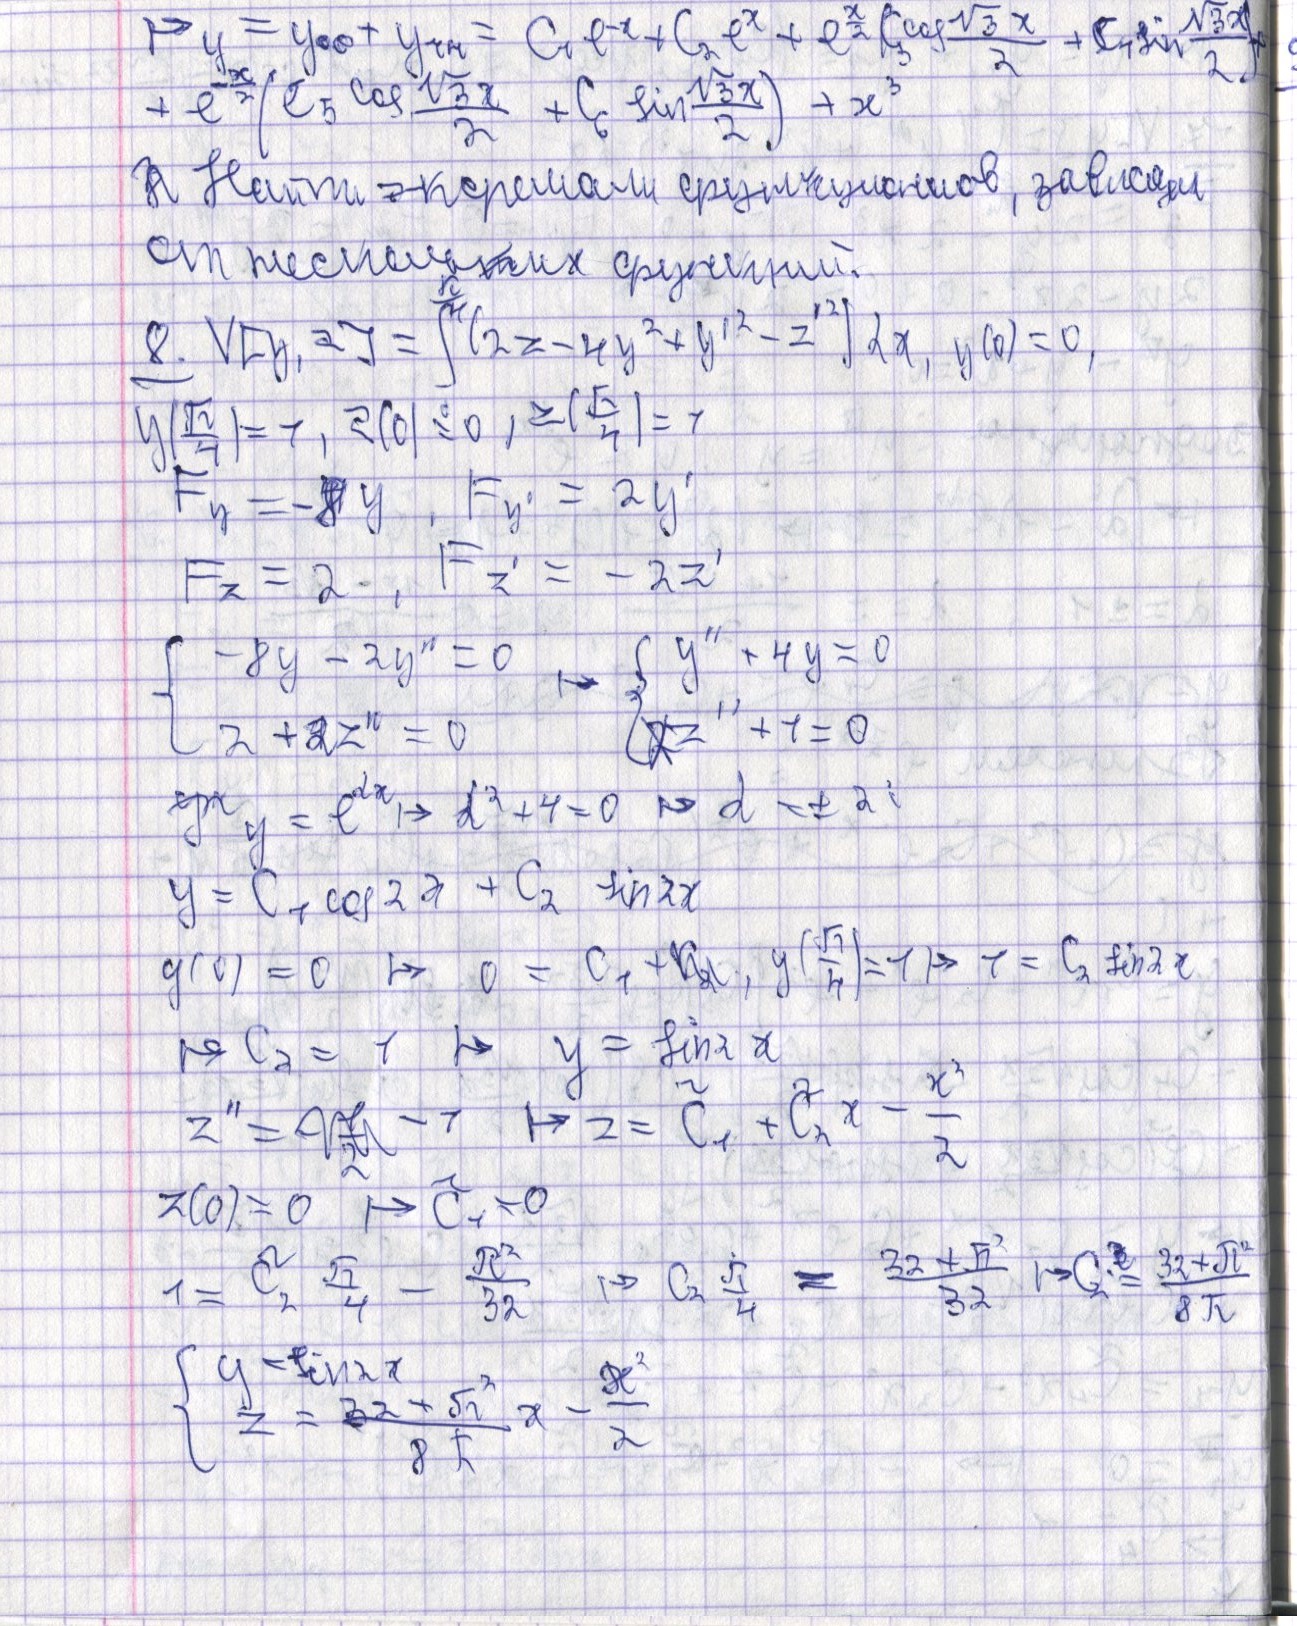 ↦ y = y₀₀ + yчн = C₁e⁻ˣ + C₂eˣ + e^(x/2)(C₃ cos √3x/2 + C₄ sin √3x/2) +
+ e^(-x/2)(C₅ cos √3x/2 + C₆ sin √3x/2) + x³
Найти экстремали функционалов, зависящи
от нескольких функций.
8. V[y, z] = ∫(2z - 4y² + y'² - z'²)dx, y(0) = 0,
y(π/4) = 1, z(0) = 0, z(π/4) = 1
F_y = -8y, F_y' = 2y'
F_z = 2, F_z' = -2z'
{ -8y - 2y'' = 0 ↦ { y'' + 4y = 0
2 + 2z'' = 0 z'' + 1 = 0
y = e^(αx) ↦ α² + 4 = 0 ↦ α = ± 2i
y = C₁ cos2x + C₂ sin2x
y(0) = 0 ↦ 0 = C₁, y(π/4) = 1 ↦ 1 = C₂ sin2x
↦ C₂ = 1 ↦ y = sin2x
z'' = -1 ↦ z = C̃₁ + C̃₂x - x²/2
z(0) = 0 ↦ C̃₁ = 0
1 = C̃₂ π/4 - π²/32 ↦ C₂ π/4 = (32 + π²)/32 ↦ C₂ = (32 + π²)/8π
{ y = sin2x
z = (32 + π²)/8π x - x²/2